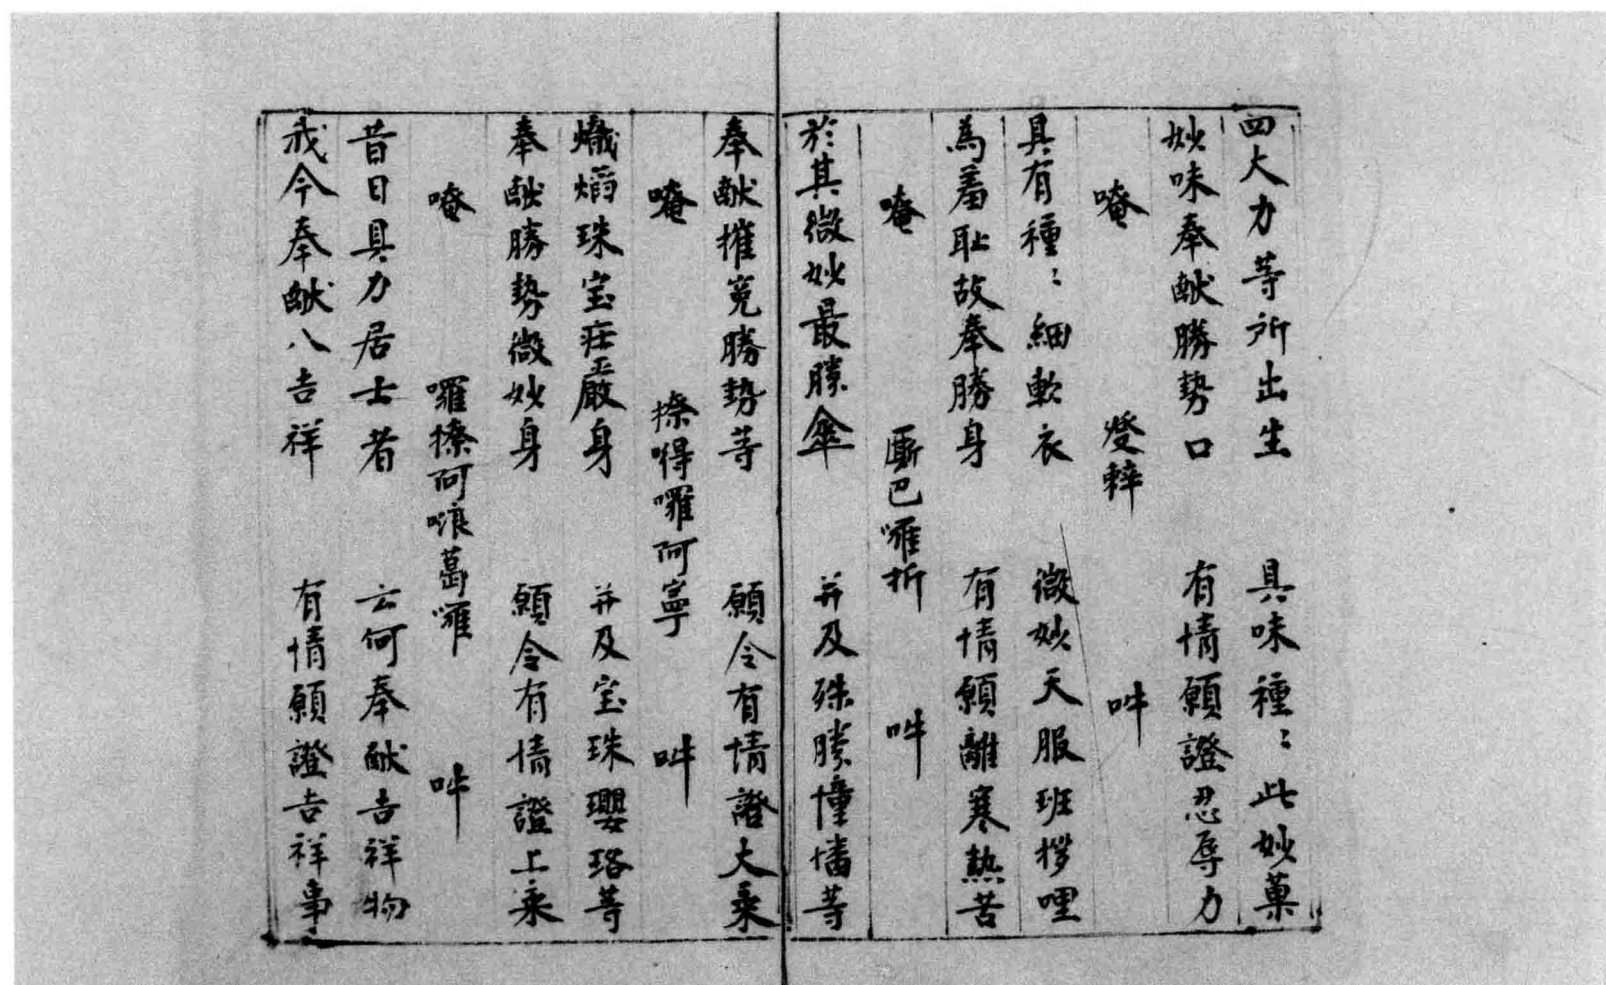 四大力等所出生　具味種〻此妙菓
妙味奉献勝勢口　有情願證忍辱力
唵　癹㘁　吽
具有種〻細軟衣　微妙天服班拶哩
為羞耻故奉勝身　有情願離寒熱苦
唵　巴囉折　吽
於其微妙最勝傘　并及殊勝憧憣等
奉献摧寃勝勢等　願令有情證大乘
唵　捺嘚囉阿寧　吽
熾焰珠宝莊嚴身　并及宝珠瓔珞等
奉献勝勢微妙身　願令有情證上乘
唵　囉捺阿㖫葛囉　吽
昔日具力居士者　云何奉献吉祥物
我今奉献八吉祥　有情願證吉祥事